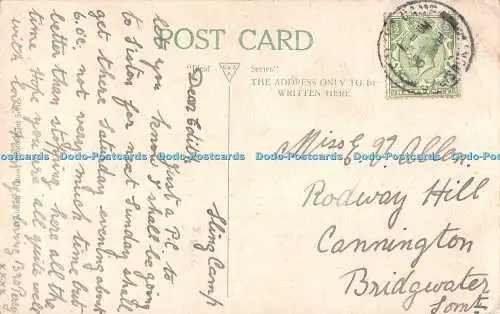 POST CARD
"Ideal Series"
THE ADDRESS ONLY TO BE
WRITTEN HERE
Sling Camp
Dear Edith
Just a P.C. to
let you know I shall be going
to Sister for next Sunday shall
get there Saturday evening about
6.oc. not very much time but
better than stopping here all the
time Hope you are all quite well
with love from your loving Bro
Miss E V Allen
Rodway Hill
Cannington
Bridgwater
Somt
Dodo-Postcards Dodo-Postcards Dodo-Postcards Dodo-Postcards Dodo-Postcards Dodo-Postcards